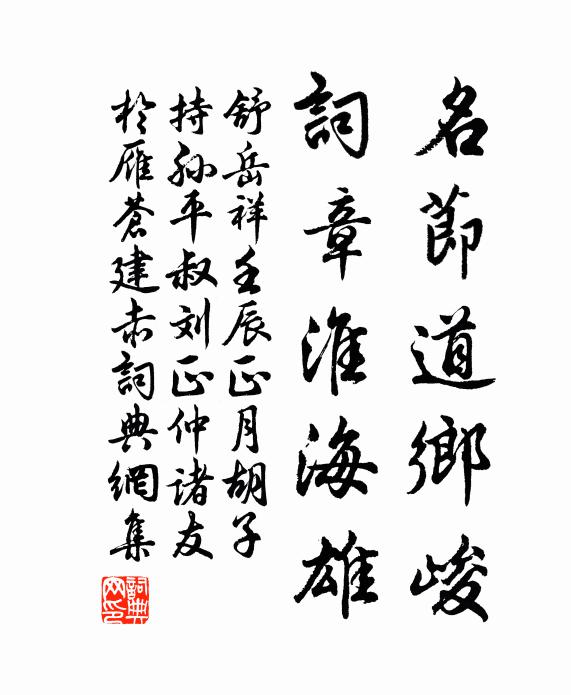 名節道鄉峻
詞章淮海雄
舒岳祥壬辰正月胡子
持孙平叔刘正仲诸友
於雁蒼建赤詞典網集
詞典
网印